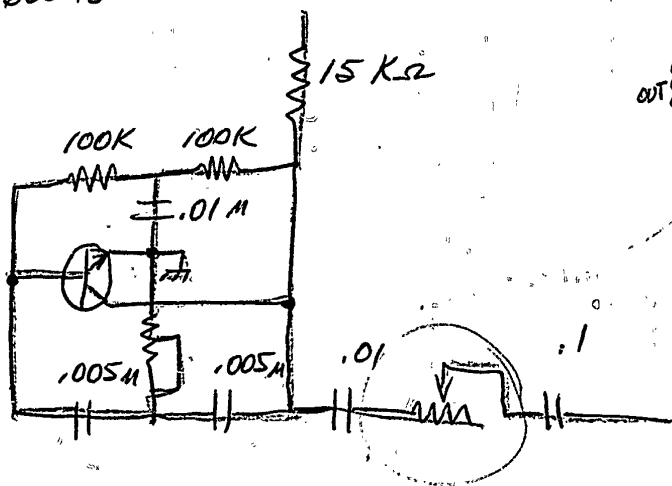 15 KΩ
OUT
100K 100K
.01 M
.005M .005M .01 .1